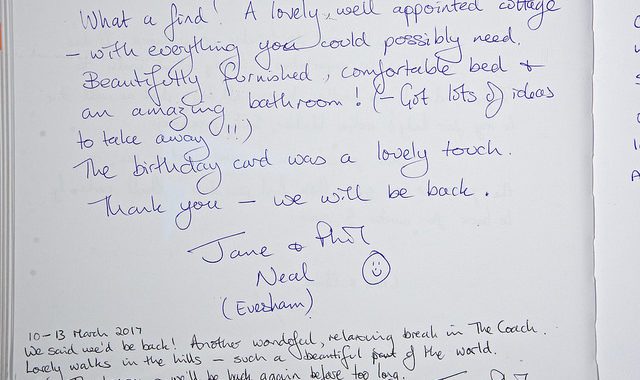 What a find! A lovely, well appointed cottage
– with everything you could possibly need.
Beautifully furnished, comfortable bed +
an amazing bathroom! (– Got lots of ideas
to take away!!)
The birthday card was a lovely touch.
Thank you – we will be back.
Jane + Phil
Neal
(Evesham)
10–13 March 2017
We said we'd be back! Another wonderful, relaxing break in The Coach.
Lovely walks in the hills – such a beautiful part of the world.
we'll be back again before too long.